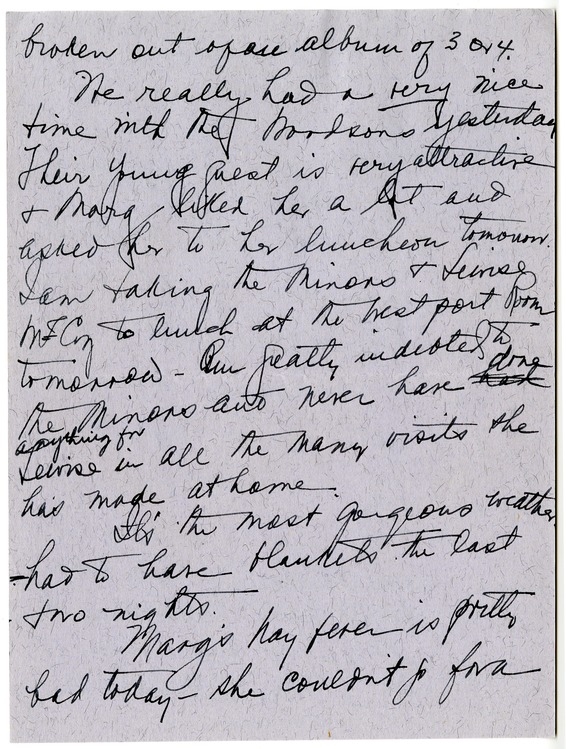 broken out of an album of 3 or 4.
We really had a very nice
time with the Woodsons yesterday
Their young guest is very attractive
& Marg liked her a lot and
asked her to her luncheon tomorrow.
I am taking the Minors & Louise
McCoy to lunch at the Westport Room
tomorrow - Am greatly indebted to
the Minors and never have had done
anything for
Louise in all the many visits she
has made at home.
It's the most gorgeous weather
-had to have blankets the last
two nights.
Marg's hay fever is pretty
bad today - she couldn't go for a